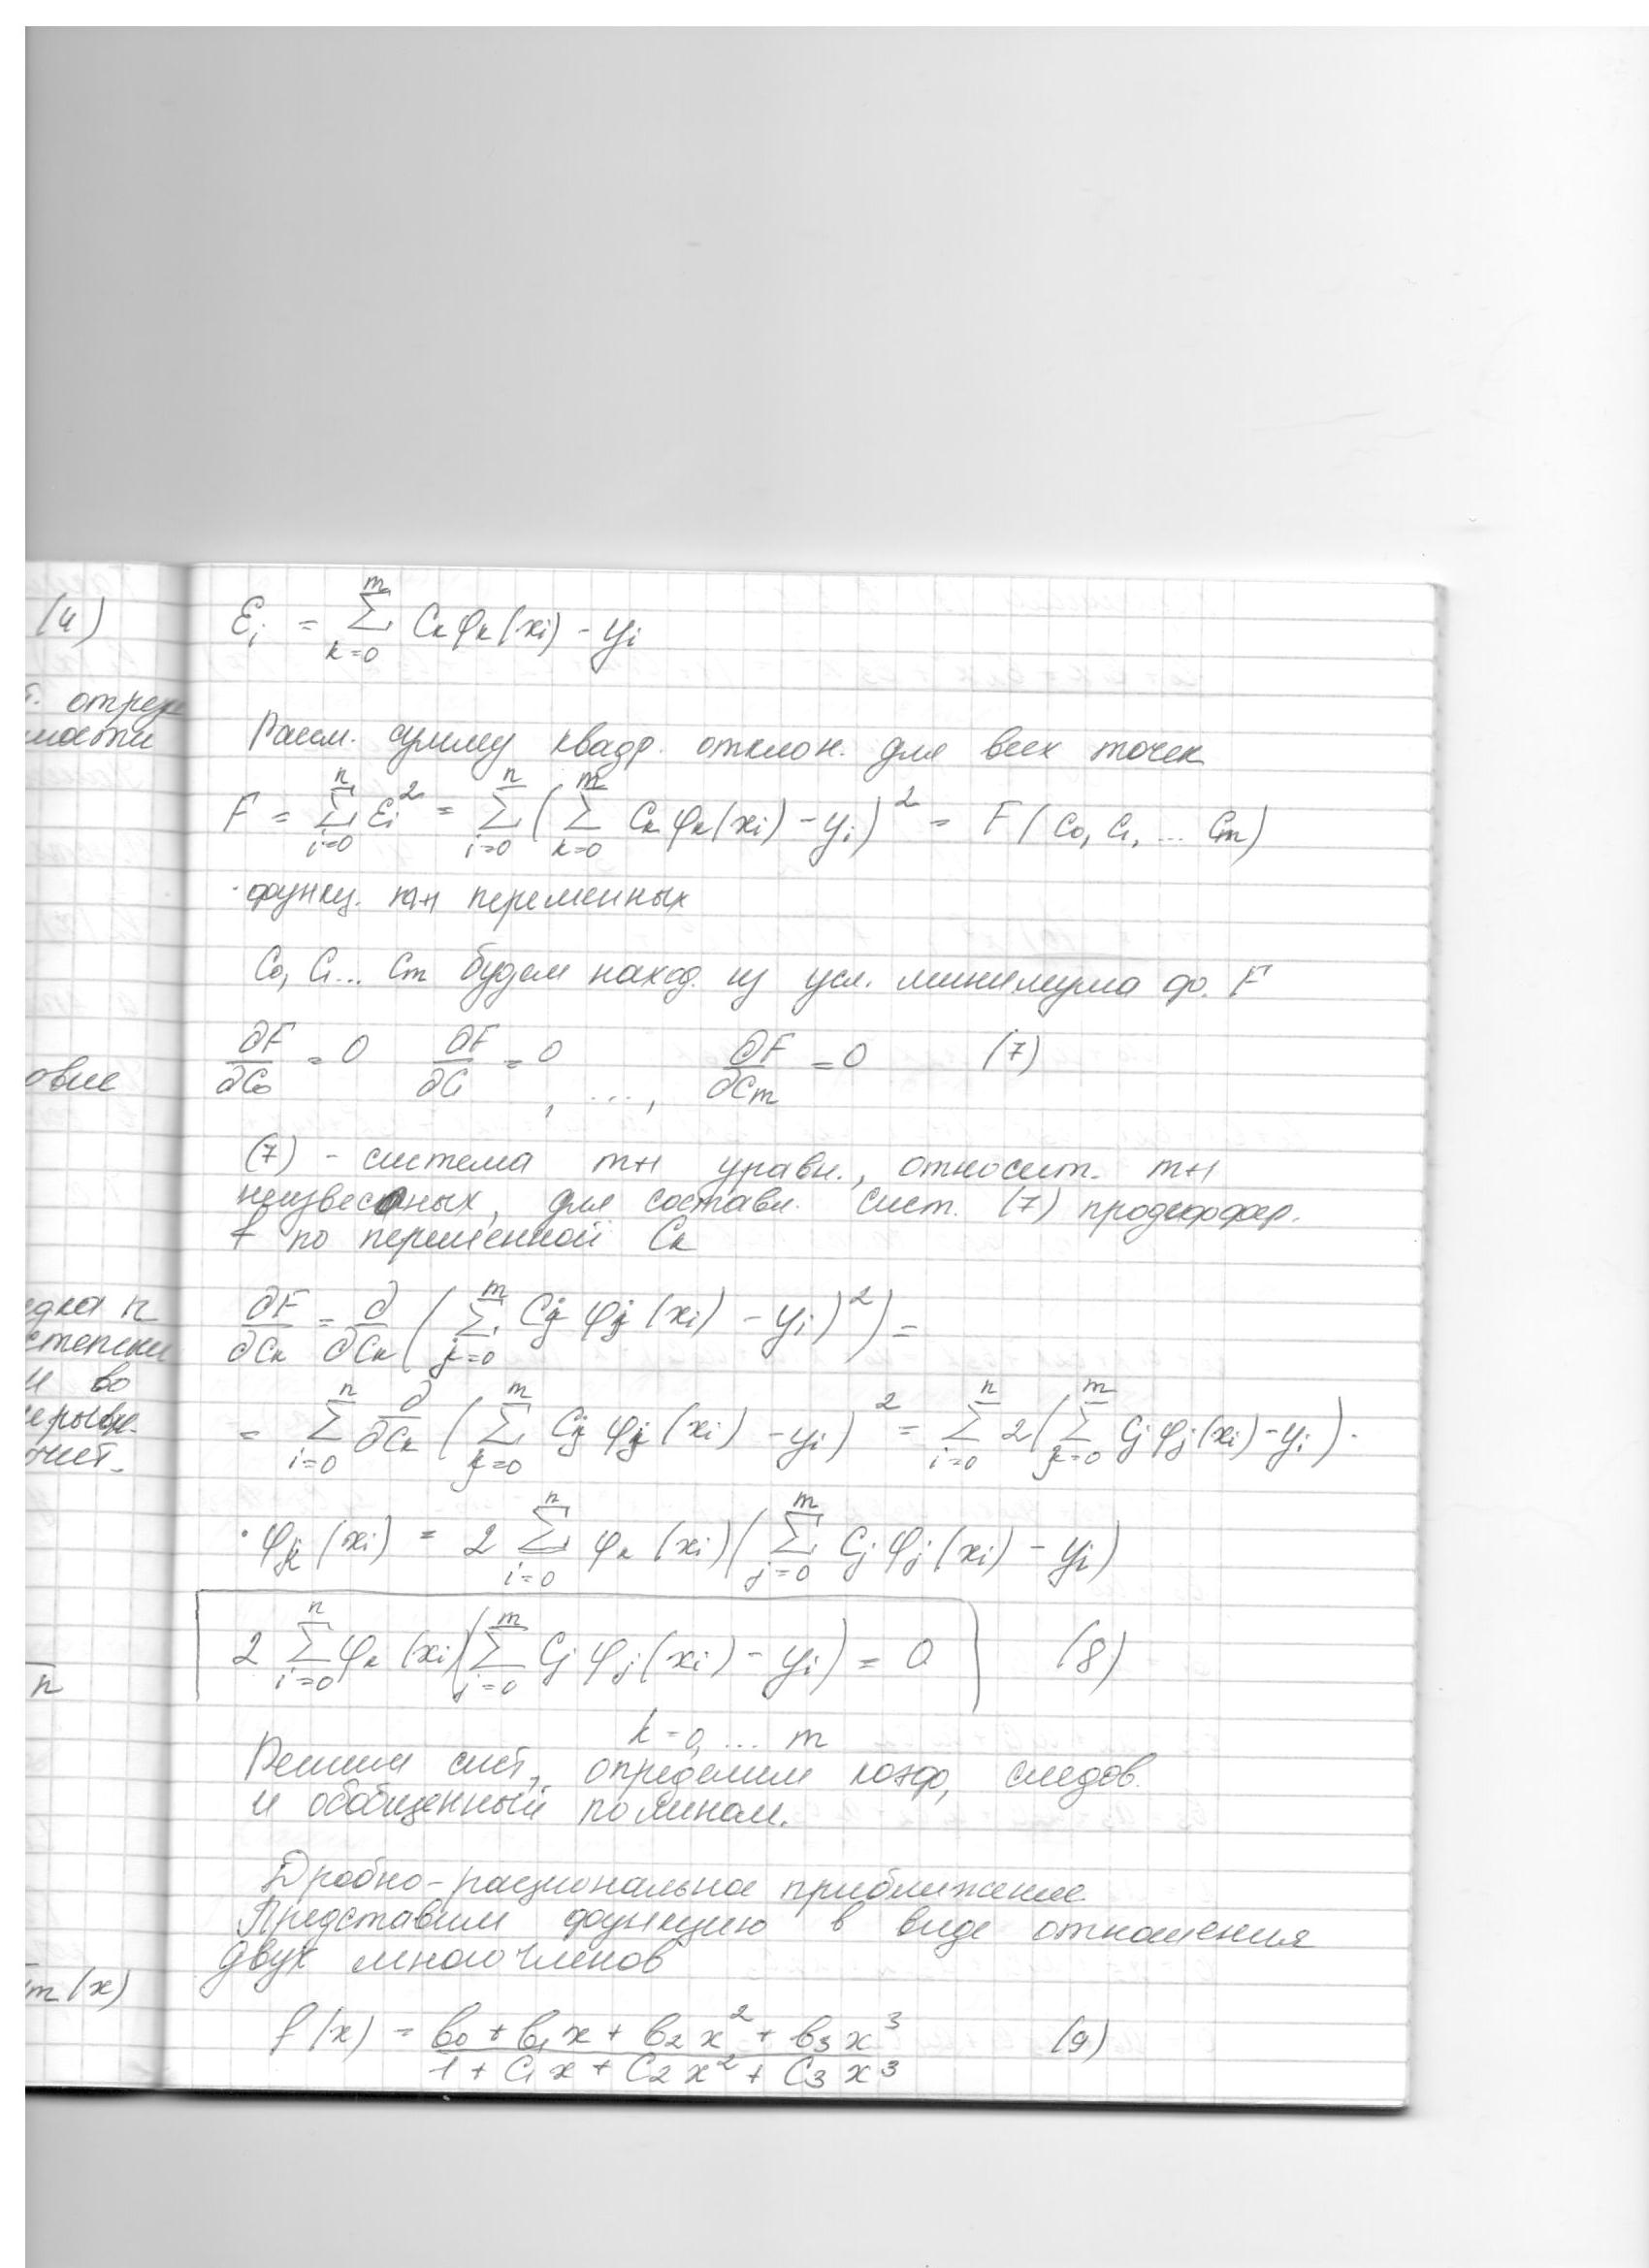 (4)
отрез
овие
n
степени
и во
n
m(x)
ε_i = Σ_{k=0}^{m} C_k φ_k(x_i) - y_i
Рассм. сумму квадр. отклон. для всех точек
F = Σ_{i=0}^{n} ε_i^2 = Σ_{i=0}^{n} (Σ_{k=0}^{m} C_k φ_k(x_i) - y_i)^2 = F(C_0, C_1, ... C_m)
функц. m+1 переменных
C_0, C_1... C_m будем наход. из усл. минимума ф. F
∂F/∂C_0 = 0 ∂F/∂C_1 = 0 , ..., ∂F/∂C_m = 0 (7)
(7) - система m+1 уравн., относит. m+1
неизвестных, для составл. сист. (7) продифференц.
f по переменной C_k
∂F/∂C_k = ∂/∂C_k (Σ_{j=0}^{m} C_j φ_j(x_i) - y_i)^2) =
= Σ_{i=0}^{n} ∂/∂C_k (Σ_{j=0}^{m} C_j φ_j(x_i) - y_i)^2 = Σ_{i=0}^{n} 2(Σ_{j=0}^{m} C_j φ_j(x_i) - y_i) ·
· φ_k(x_i) = 2 Σ_{i=0}^{n} φ_k(x_i)(Σ_{j=0}^{m} C_j φ_j(x_i) - y_i)
2 Σ_{i=0}^{n} φ_k(x_i)(Σ_{j=0}^{m} C_j φ_j(x_i) - y_i) = 0 (8)
k=0, ... m
Решим сист., определим коэф, следов.
и обобщенный полином.
Дробно-рациональное приближение
Представим функцию в виде отношения
двух многочленов
f(x) = (b_0 + b_1 x + b_2 x^2 + b_3 x^3)/(1 + C_1 x + C_2 x^2 + C_3 x^3) (9)